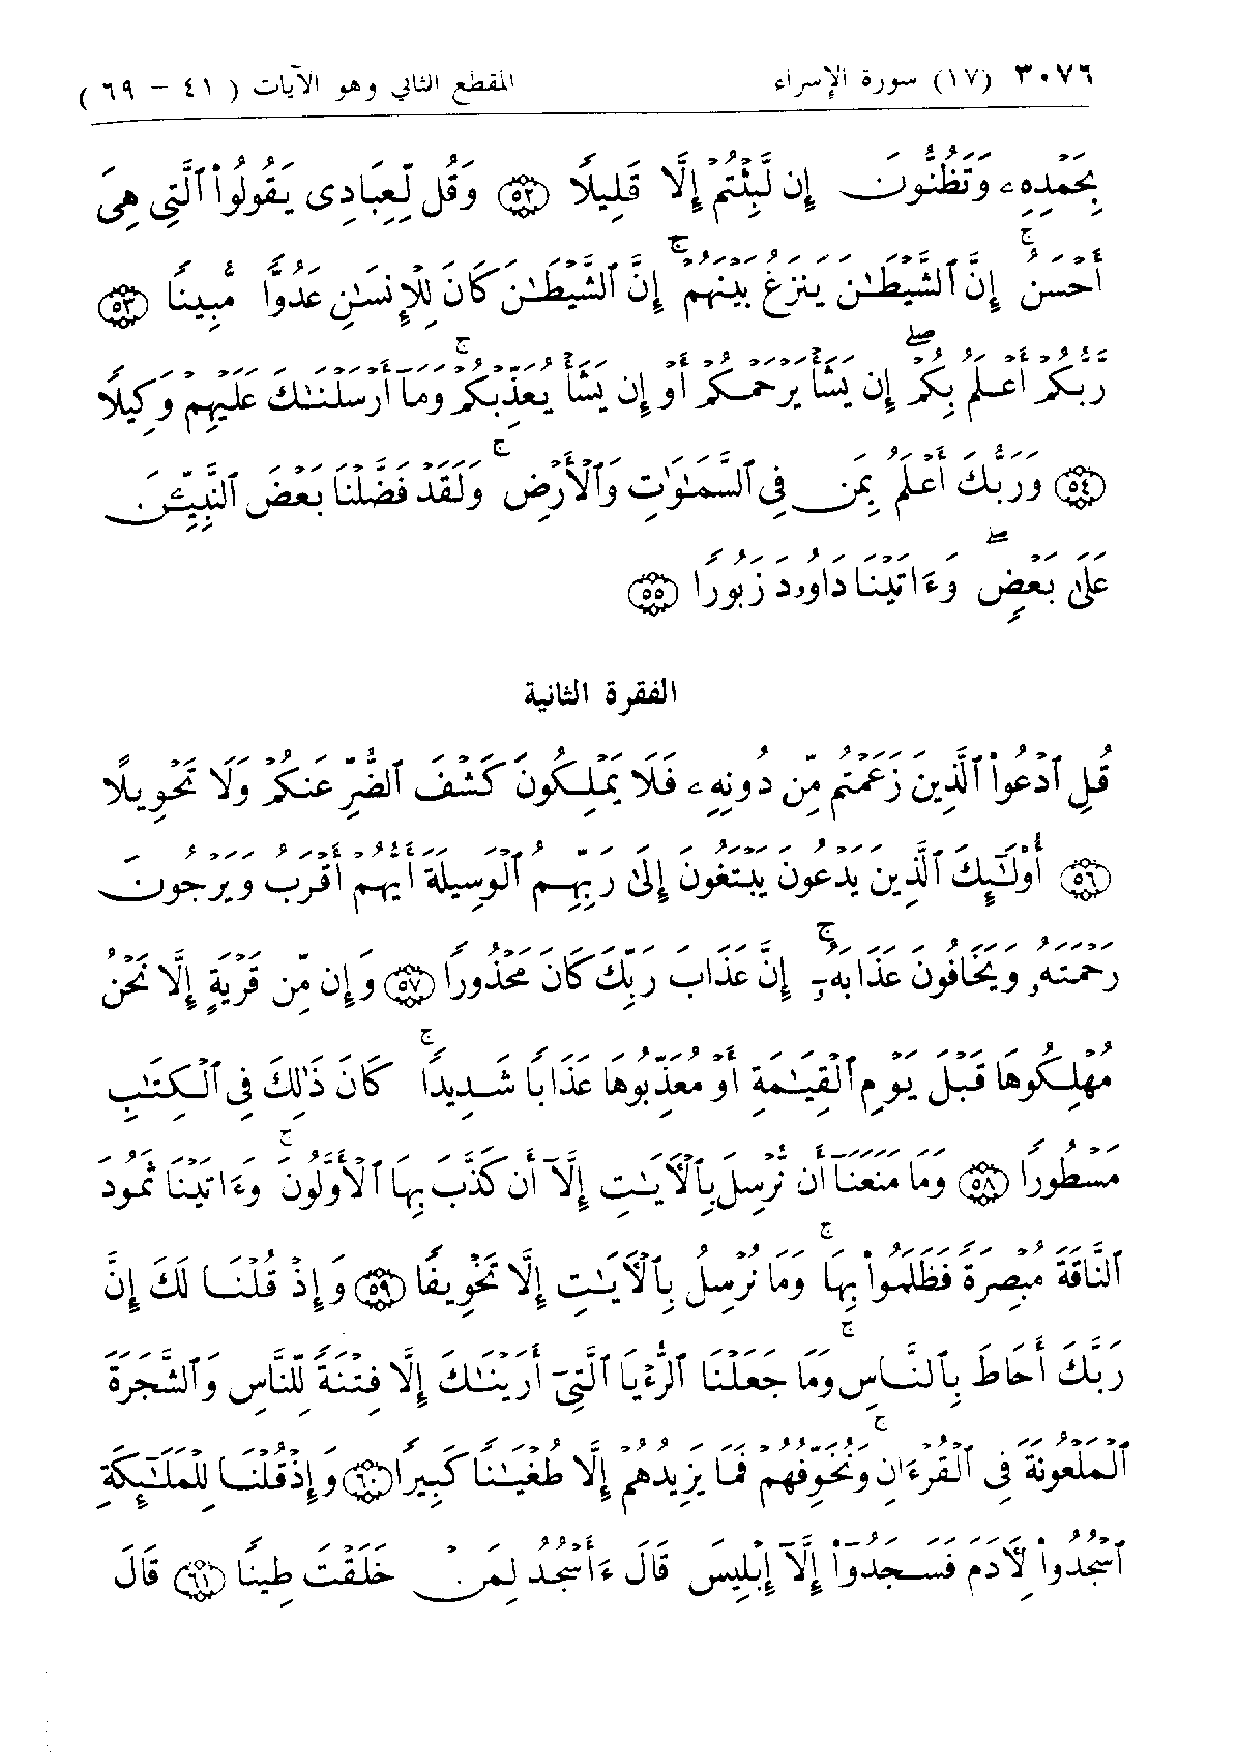 ٣٠٧٦ (١٧) سورة الإسراء المقطع الثاني وهو الآيات ( ٤١ – ٦٩ )
بِحَمْدِهِۦ وَتَظُنُّونَ إِن لَّبِثْتُمْ إِلَّا قَلِيلًا ۝٥٢ وَقُل لِّعِبَادِى يَقُولُوا۟ ٱلَّتِى هِىَ
أَحْسَنُ ۚ إِنَّ ٱلشَّيْطَٰنَ يَنزَغُ بَيْنَهُمْ ۚ إِنَّ ٱلشَّيْطَٰنَ كَانَ لِلْإِنسَٰنِ عَدُوًّا مُّبِينًا ۝٥٣
رَّبُّكُمْ أَعْلَمُ بِكُمْ ۖ إِن يَشَأْ يَرْحَمْكُمْ أَوْ إِن يَشَأْ يُعَذِّبْكُمْ ۚ وَمَآ أَرْسَلْنَٰكَ عَلَيْهِمْ وَكِيلًا
۝٥٤ وَرَبُّكَ أَعْلَمُ بِمَن فِى ٱلسَّمَٰوَٰتِ وَٱلْأَرْضِ ۚ وَلَقَدْ فَضَّلْنَا بَعْضَ ٱلنَّبِيِّـۧنَ
عَلَىٰ بَعْضٍ ۖ وَءَاتَيْنَا دَاوُۥدَ زَبُورًا ۝٥٥
الفقرة الثانية
قُلِ ٱدْعُوا۟ ٱلَّذِينَ زَعَمْتُم مِّن دُونِهِۦ فَلَا يَمْلِكُونَ كَشْفَ ٱلضُّرِّ عَنكُمْ وَلَا تَحْوِيلًا
۝٥٦ أُو۟لَٰٓئِكَ ٱلَّذِينَ يَدْعُونَ يَبْتَغُونَ إِلَىٰ رَبِّهِمُ ٱلْوَسِيلَةَ أَيُّهُمْ أَقْرَبُ وَيَرْجُونَ
رَحْمَتَهُۥ وَيَخَافُونَ عَذَابَهُۥٓ ۚ إِنَّ عَذَابَ رَبِّكَ كَانَ مَحْذُورًا ۝٥٧ وَإِن مِّن قَرْيَةٍ إِلَّا نَحْنُ
مُهْلِكُوهَا قَبْلَ يَوْمِ ٱلْقِيَٰمَةِ أَوْ مُعَذِّبُوهَا عَذَابًا شَدِيدًا ۚ كَانَ ذَٰلِكَ فِى ٱلْكِتَٰبِ
مَسْطُورًا ۝٥٨ وَمَا مَنَعَنَآ أَن نُّرْسِلَ بِٱلْـَٔايَٰتِ إِلَّآ أَن كَذَّبَ بِهَا ٱلْأَوَّلُونَ ۚ وَءَاتَيْنَا ثَمُودَ
ٱلنَّاقَةَ مُبْصِرَةً فَظَلَمُوا۟ بِهَا ۚ وَمَا نُرْسِلُ بِٱلْـَٔايَٰتِ إِلَّا تَخْوِيفًا ۝٥٩ وَإِذْ قُلْنَا لَكَ إِنَّ
رَبَّكَ أَحَاطَ بِٱلنَّاسِ ۚ وَمَا جَعَلْنَا ٱلرُّءْيَا ٱلَّتِىٓ أَرَيْنَٰكَ إِلَّا فِتْنَةً لِّلنَّاسِ وَٱلشَّجَرَةَ
ٱلْمَلْعُونَةَ فِى ٱلْقُرْءَانِ ۚ وَنُخَوِّفُهُمْ فَمَا يَزِيدُهُمْ إِلَّا طُغْيَٰنًا كَبِيرًا ۝٦٠ وَإِذْ قُلْنَا لِلْمَلَٰٓئِكَةِ
ٱسْجُدُوا۟ لِـَٔادَمَ فَسَجَدُوٓا۟ إِلَّآ إِبْلِيسَ قَالَ ءَأَسْجُدُ لِمَنْ خَلَقْتَ طِينًا ۝٦١ قَالَ